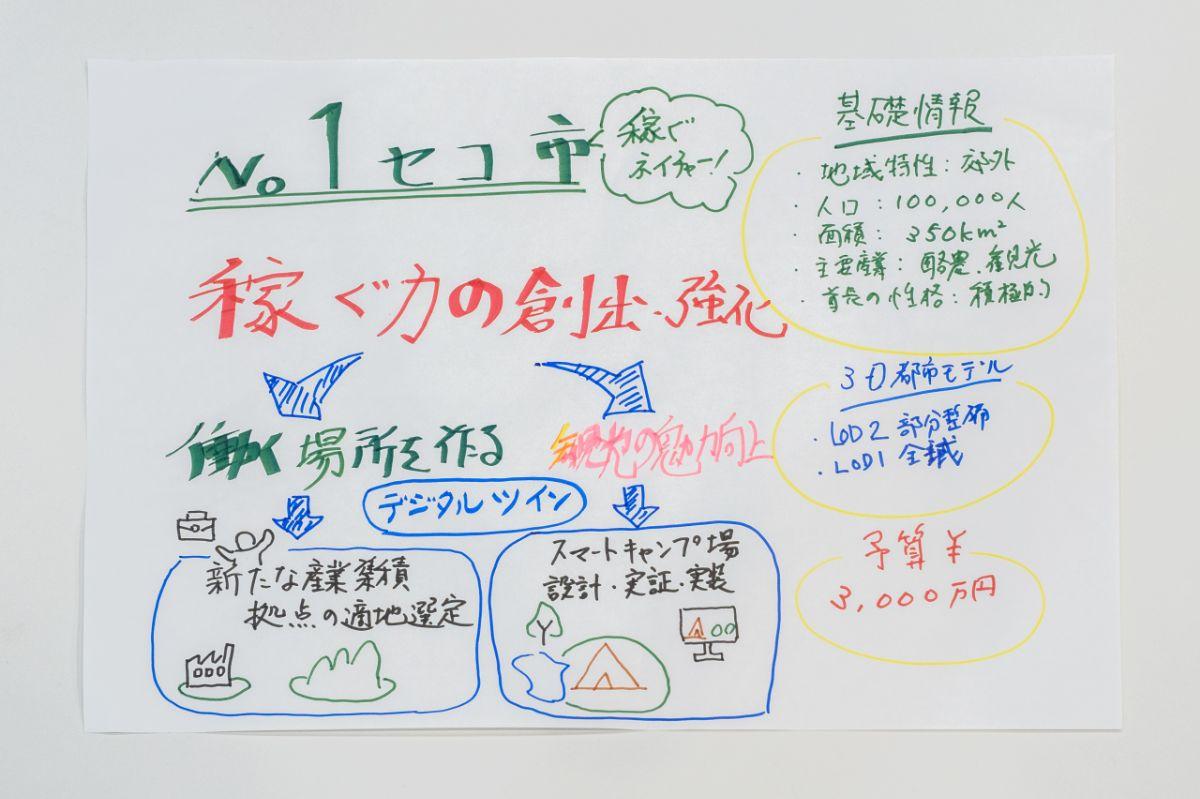 No.1セコ市
稼ぐ
ネイチャー!
稼ぐ力の創出・強化
働く場所を作る
観光の魅力向上
デジタルツイン
新たな産業築積
拠点の適地選定
スマートキャンプ場
設計・実証・実装
基礎情報
・地域特性:郊外
・人口:100,000人
・面積:350km²
・主要産業:酪農、観光
・首長の性格:積極的
3D都市モデル
・LOD2 部分整備
・LOD1 全域
予算¥
3,000万円